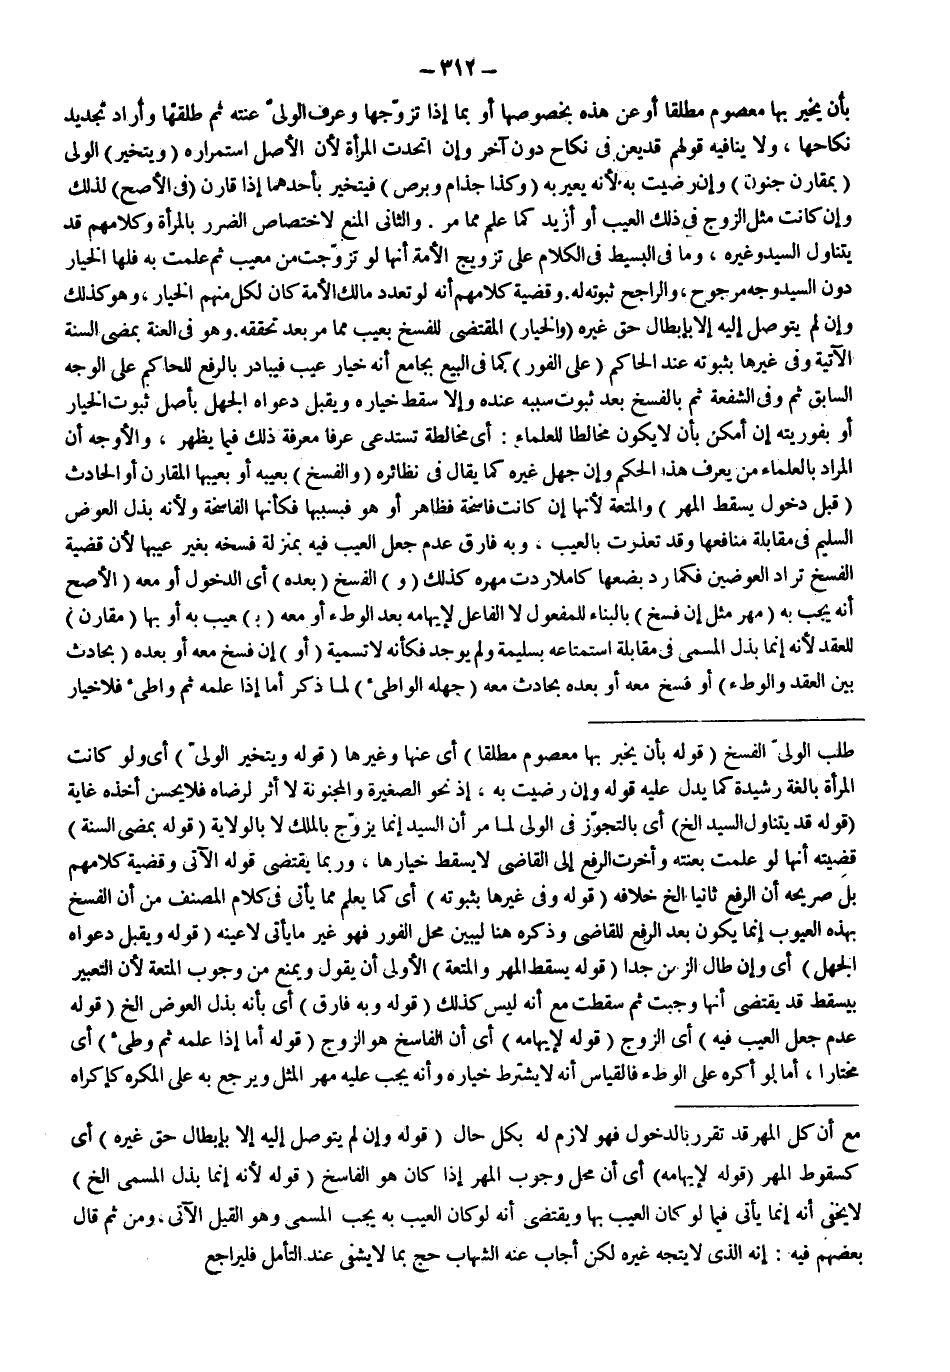 – ٣١٢ –
بأن يخبر بها معصوم مطلقا أو عن هذه بخصوصها أو بما إذا تزوّجها وعرف الولىّ عنته ثم طلقها وأراد تجديد
نكاحها ، ولا ينافيه قولهم قديعن فى نكاح دون آخر وإن اتحدت المرأة لأن الأصل استمراره ( ويتخير ) الولى
( بمقارن جنون ) وإن رضيت به لأنه يعيربه ( وكذا جذام وبرص ) فيتخير بأحدهما إذا قارن (فى الأصح) لذلك
وإن كانت مثل الزوج فى ذلك العيب أو أزيد كما علم مما مر . والثانى المنع لاختصاص الضرر بالمرأة وكلامهم قد
يتناول السيد وغيره ، وما فى البسيط فى الكلام على تزويج الأمة أنها لو تزوّجت من معيب ثم علمت به فلها الخيار
دون السيد وجه مرجوح ، والراجح ثبوته له . وقضية كلامهم أنه لو تعدد مالك الأمة كان لكل منهم الخيار ، وهو كذلك
وإن لم يتوصل إليه إلا بإبطال حق غيره (والخيار) المقتضى للفسخ بعيب مما مر بعد تحققه . وهو فى العنة بمضى السنة
الآتية وفى غيرها بثبوته عند الحاكم ( على الفور ) كما فى البيع بجامع أنه خيار عيب فيبادر بالرفع للحاكم على الوجه
السابق ثم وفى الشفعة ثم بالفسخ بعد ثبوت سببه عنده وإلا سقط خياره ويقبل دعواه الجهل بأصل ثبوت الخيار
أو بفوريته إن أمكن بأن لايكون مخالطا للعلماء : أى مخالطة تستدعى عرفا معرفة ذلك فيما يظهر ، والأوجه أن
المراد بالعلماء من يعرف هذا الحكم وإن جهل غيره كما يقال فى نظائره ( والفسخ ) بعيبه أو بعيبها المقارن أو الحادث
( قبل دخول يسقط المهر ) والمتعة لأنها إن كانت فاسخة فظاهر أو هو فبسببها فكأنها الفاسخة ولأنه بذل العوض
السليم فى مقابلة منافعها وقد تعذرت بالعيب ، وبه فارق عدم جعل العيب فيه بمنزلة فسخه بغير عيبها لأن قضية
الفسخ تراد العوضين فكما رد بضعها كاملا ردت مهره كذلك ( و ) الفسخ ( بعده ) أى الدخول أو معه ( الأصح
أنه يجب به ( مهر مثل إن فسخ ) بالبناء للمفعول لا الفاعل لإيهامه بعد الوطء أو معه ( بـ ) عيب به أو بها ( مقارن )
للعقد لأنه إنما بذل المسمى فى مقابلة استمتاعه بسليمة ولم يوجد فكأنه لا تسمية ( أو ) إن فسخ معه أو بعده ( بحادث
بين العقد والوطء ) أو فسخ معه أو بعده بحادث معه ( جهله الواطئ ) لما ذكر أما إذا علمه ثم واطئ فلاخيار
طلب الولىّ الفسخ ( قوله بأن يخبر بها معصوم مطلقا ) أى عنها وغيرها ( قوله ويتخير الولىّ ) أى ولو كانت
المرأة بالغة رشيدة كما يدل عليه قوله وإن رضيت به ، إذ نحو الصغيرة والمجنونة لا أثر لرضاه فلايحسن أخذه غاية
(قوله قد يتناول السيد الخ) أى بالتجوّز فى الولى لما مر أن السيد إنما يزوّج بالملك لا بالولاية ( قوله بمضى السنة )
قضيته أنها لو علمت بعنته وأخرت الرفع إلى القاضى لايسقط خيارها ، وربما يقتضى قوله الآتى وقضية كلامهم
بل صريحه أن الرفع ثانيا الخ خلافه ( قوله وفى غيرها بثبوته ) أى كما يعلم مما يأتى فى كلام المصنف من أن الفسخ
بهذه العيوب إنما يكون بعد الرفع للقاضى وذكره هنا ليبين محل الفور فهو غير مايأتى لاعينه ( قوله ويقبل دعواه
الجهل ) أى وإن طال الزمن جدا ( قوله يسقط المهر والمتعة ) الأولى أن يقول ويمنع من وجوب المتعة لأن التعبير
بيسقط قد يقتضى أنها وجبت ثم سقطت مع أنه ليس كذلك ( قوله وبه فارق ) أى بأنه بذل العوض الخ ( قوله
عدم جعل العيب فيه ) أى الزوج ( قوله لإيهامه ) أى أن الفاسخ هو الزوج ( قوله أما إذا علمه ثم وطئ ) أى
مختارا ، أما لو أكره على الوطء فالقياس أنه لايشترط خياره وأنه يجب عليه مهر المثل ويرجع به على المكره كإكراه
مع أن كل المهر قد تقرر بالدخول فهو لازم له بكل حال ( قوله وإن لم يتوصل إليه إلا بإبطال حق غيره ) أى
كسقوط المهر (قوله لإيهامه) أى أن محل وجوب المهر إذا كان هو الفاسخ ( قوله لأنه إنما بذل المسمى الخ )
لايخفى أنه إنما يأتى فيما لو كان العيب بها ويقتضى أنه لو كان العيب به يجب المسمى وهو القيل الآتى ، ومن ثم قال
بعضهم فيه : إنه الذى لايتجه غيره لكن أجاب عنه الشهاب حج بما لايشفى عند التأمل فليراجع